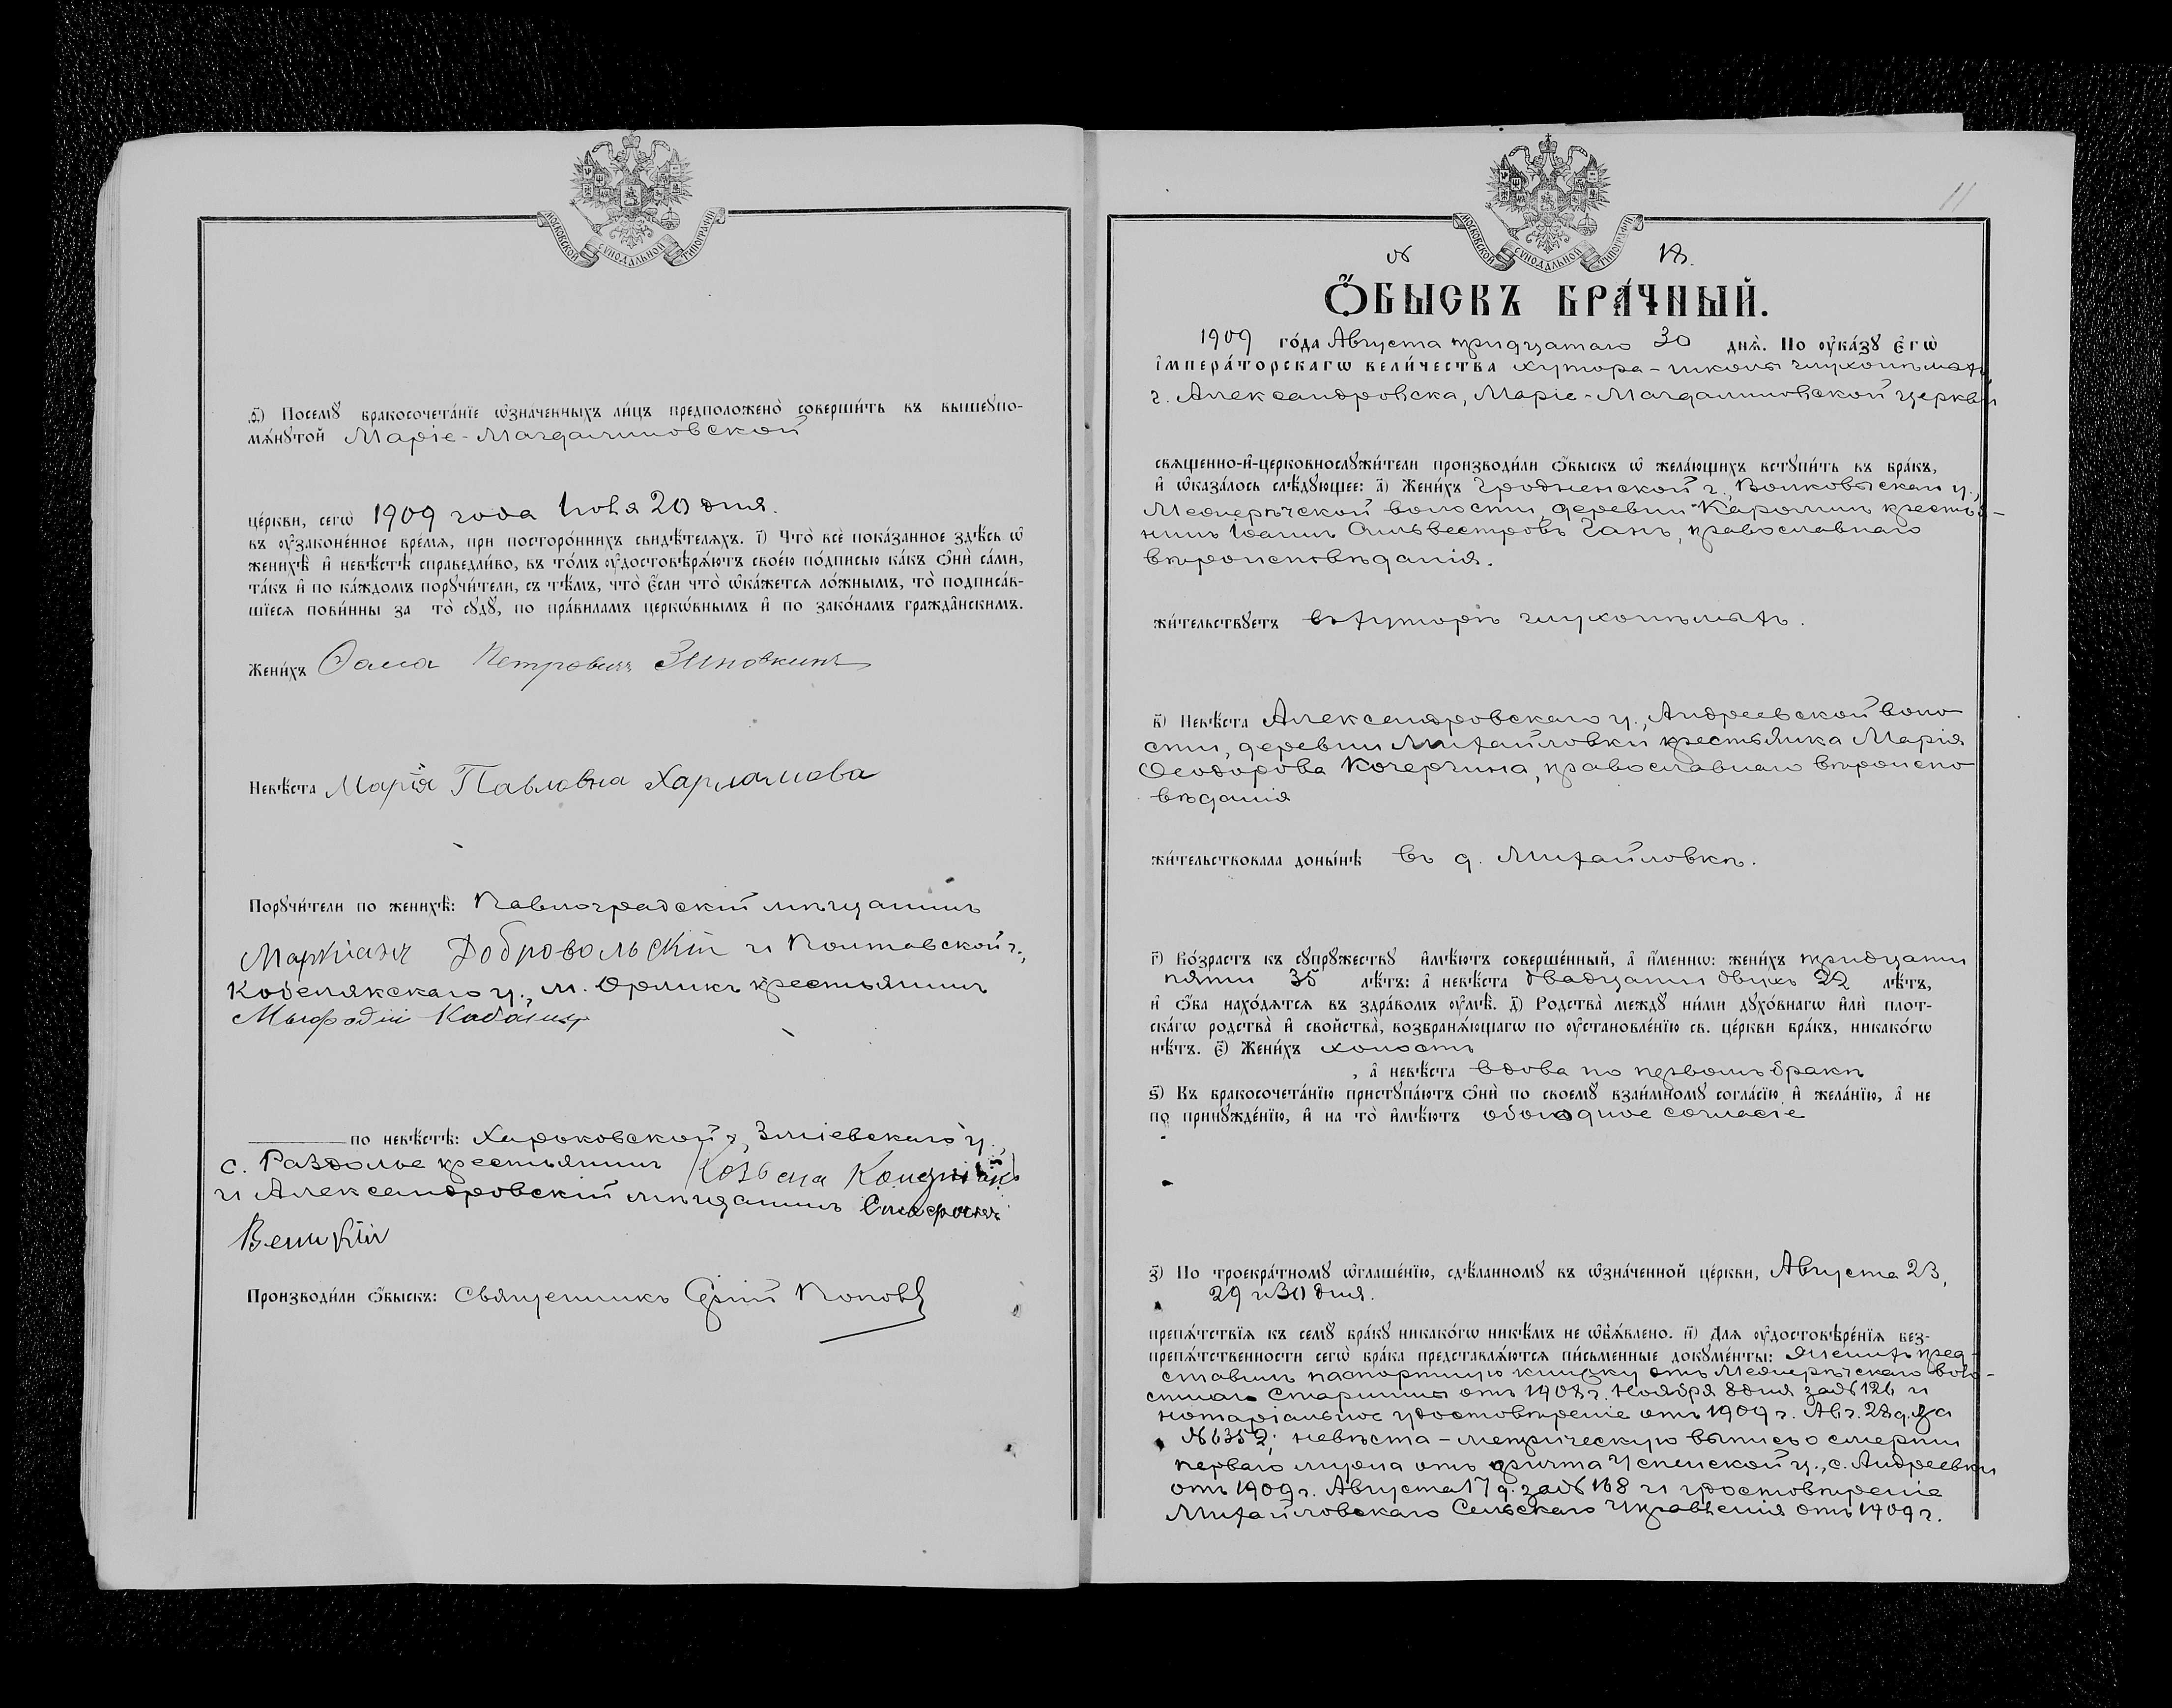 МОСКОВСКОЙ СѴНОДАЛЬНОЙ ТИПОГРАФІИ
ѳ҃) Посемꙋ бракосочета́нїе ѡ҆зна́ченныхъ ли́цъ предположено̀ соверши́ть въ вышеꙋпо-
мѧ́нꙋтой Маріе-Магдалиновской
це́ркви, сегѡ̀ 1909 года Іюня 20 дня.
въ ᲂу҆законе́нное вре́мѧ, при посторо́ннихъ свидѣ́телѧхъ. і҃) Что̀ всѐ пока́занное здѣ́сь ѡ҆
женихѣ̀ и҆ невѣ́стѣ справедли́во, въ то́мъ ᲂу҆достовѣрѧ́ютъ свое́ю по́дписью ка́къ ѻ҆нѝ са́ми,
та́къ и҆ по ка́ждомъ порꙋчи́тели, съ тѣ́мъ, что̀ є҆́сли что̀ ѡ҆ка́жется ло́жнымъ, то̀ подписа́в-
шїесѧ пови́нны за то̀ сꙋдꙋ̀, по пра́виламъ церкѡ́внымъ и҆ по зако́намъ гражда̑нскимъ.
Жени́хъ Ѳама Петровичъ Зиновкинъ
Невѣ́ста Марія Павловна Харламова
Порꙋчи́тели по женихѣ̀: Павлоградскій мѣщанинъ
Маркіанъ Добровольскій и Полтавской г.,
Кобелякскаго у., м. Орликъ крестьянинъ
по невѣ́стѣ: Харьковской г., Зміевскаго у.,
с. Раздолье крестьянинъ Козьма
и Александровскій мѣщанинъ Стефанъ
Великій
Производи́ли ѻ҆́быскъ: Священникъ Поповъ
11
МОСКОВСКОЙ СѴНОДАЛЬНОЙ ТИПОГРАФІИ
№
Ѻ҆́БЫСКЪ БРА́ЧНЫЙ.
1909 го́да Августа тридцатаго 30 днѧ̀. По ᲂу҆ка́зꙋ є҆гѡ̀
і҆мпера́торскагѡ вели́чества хутора-школы глухонѣмыхъ,
г. Александровска, Маріе-Магдалиновской церкви
свѧщенно-и҆-церковнослꙋжи́тели производи́ли ѻ҆́быскъ ѡ҆ жела́ющихъ встꙋпи́ть въ бра́къ,
и҆ ѡ҆каза́лось слѣ́дꙋющее: а҃) Жени́хъ Гродненской г., Волковыскаго у.,
Межиречской волости, деревни Каролинъ кресть-
нинъ Іоаннъ Сильвестровъ Ганъ, православнаго
вѣроисповѣданія.
жи́тельствꙋетъ въ хуторѣ глухонѣмыхъ.
в҃) Невѣ́ста Александровскаго у., Андреевской воло
сти, деревни Михайловки крестьянка Марія
Ѳеодорова Кочергина, православнаго вѣроиспо
вѣданія
жи́тельствовала доны́нѣ въ д. Михайловкѣ.
г҃) Во́зрастъ къ сꙋпрꙋ́жествꙋ и҆мѣ́ютъ соверше́нный, а҆ и҆́меннѡ: жени́хъ тридцати
пяти 35 лѣ́тъ: а҆ невѣ́ста двадцати двухъ 22 лѣ́тъ,
и҆ ѻ҆́ба нахо́дѧтсѧ въ здра́вомъ ᲂу҆мѣ̀. д҃) Родства̀ междꙋ̀ ни́ми дꙋхо́внагѡ и҆лѝ плот-
ска́гѡ родства̀ и҆ свойства̀, возбранѧ́ющагѡ по ᲂу҆становле́нїю св. це́ркви бра́къ, никако́гѡ
нѣ́тъ. є҃) Жени́хъ холостъ
, а҆ невѣ́ста вдова по первомъ бракѣ
ѕ҃) Къ бракосочета́нїю пристꙋпа́ютъ ѻ҆нѝ по своемꙋ̀ взаи́мномꙋ согла́сїю и҆ жела́нїю, а҆ не
по принꙋжде́нїю, и҆ на то̀ и҆мѣ́ютъ обоюдное согласіе
з҃) По троекра́тномꙋ ѡ҆глаше́нїю, сдѣ́ланномꙋ въ ѡ҆зна́ченной це́ркви, Августа 23,
29 и 30 дня.
препѧ́тствїѧ къ семꙋ̀ бра́кꙋ никако́гѡ никѣ́мъ не ѡ҆б̾ѧ́влено. и҃) Длѧ ᲂу҆достовѣре́нїѧ без-
препѧ́тственности сегѡ̀ бра́ка представлѧ́ютсѧ пи́сьменные докꙋме́нты: Женихъ пред-
ставилъ паспортную книжку отъ Межиречскаго воло-
стнаго Старшины отъ 1908 г. Ноября 8 дня за № 126 и
нотаріальное удостовѣреніе отъ 1909 г. Авг. 28 д. за
№ 6352; невѣста - метрическую выпись о смерти
перваго мужа отъ причта Успенской ц., с. Андреевки
отъ 1909 г. Августа 17 д. за № 168 и удостовѣреніе
Михайловскаго Сельскаго Управленія отъ 1909 г.